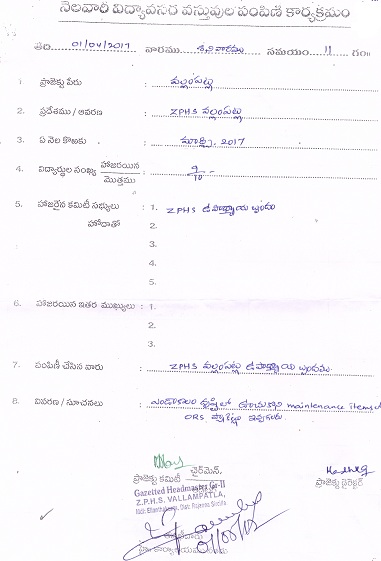 నెలవారి విద్యావసర వస్తువుల పంపిణి కార్యక్రమం
తేది 01/04/2017 వారము శనివారము సమయం 11 గం॥
1. ప్రాజెక్టు పేరు : వల్లంపట్ల
2. ప్రదేశము / ఆవరణ : ZPHS వల్లంపట్ల
3. ఏ నెల కొఱకు : మార్చి, 2017
4. విద్యార్థుల సంఖ్య హాజరయిన / మొత్తము : 9/10
5. హాజరైన కమిటీ సభ్యులు : 1. ZPHS ఉపాధ్యాయ బృందం
హోదాతో 2.
3.
4.
5.
6. హాజరయిన ఇతర ముఖ్యులు : 1.
2.
3.
7. పంపిణీ చేసిన వారు : ZPHS వల్లంపట్ల ఉపాధ్యాయ బృందము
8. వివరణ / సూచనలు : ఎండాకాలం maintenance items
ORS ఇవ్వగలరు
ఛైర్మెన్,
ప్రాజెక్టు కమిటీ
ప్రాజెక్టు డైరెక్టర్
Gazetted Headmaster Gr-II
Z.P.H.S. VALLAMPATLA,